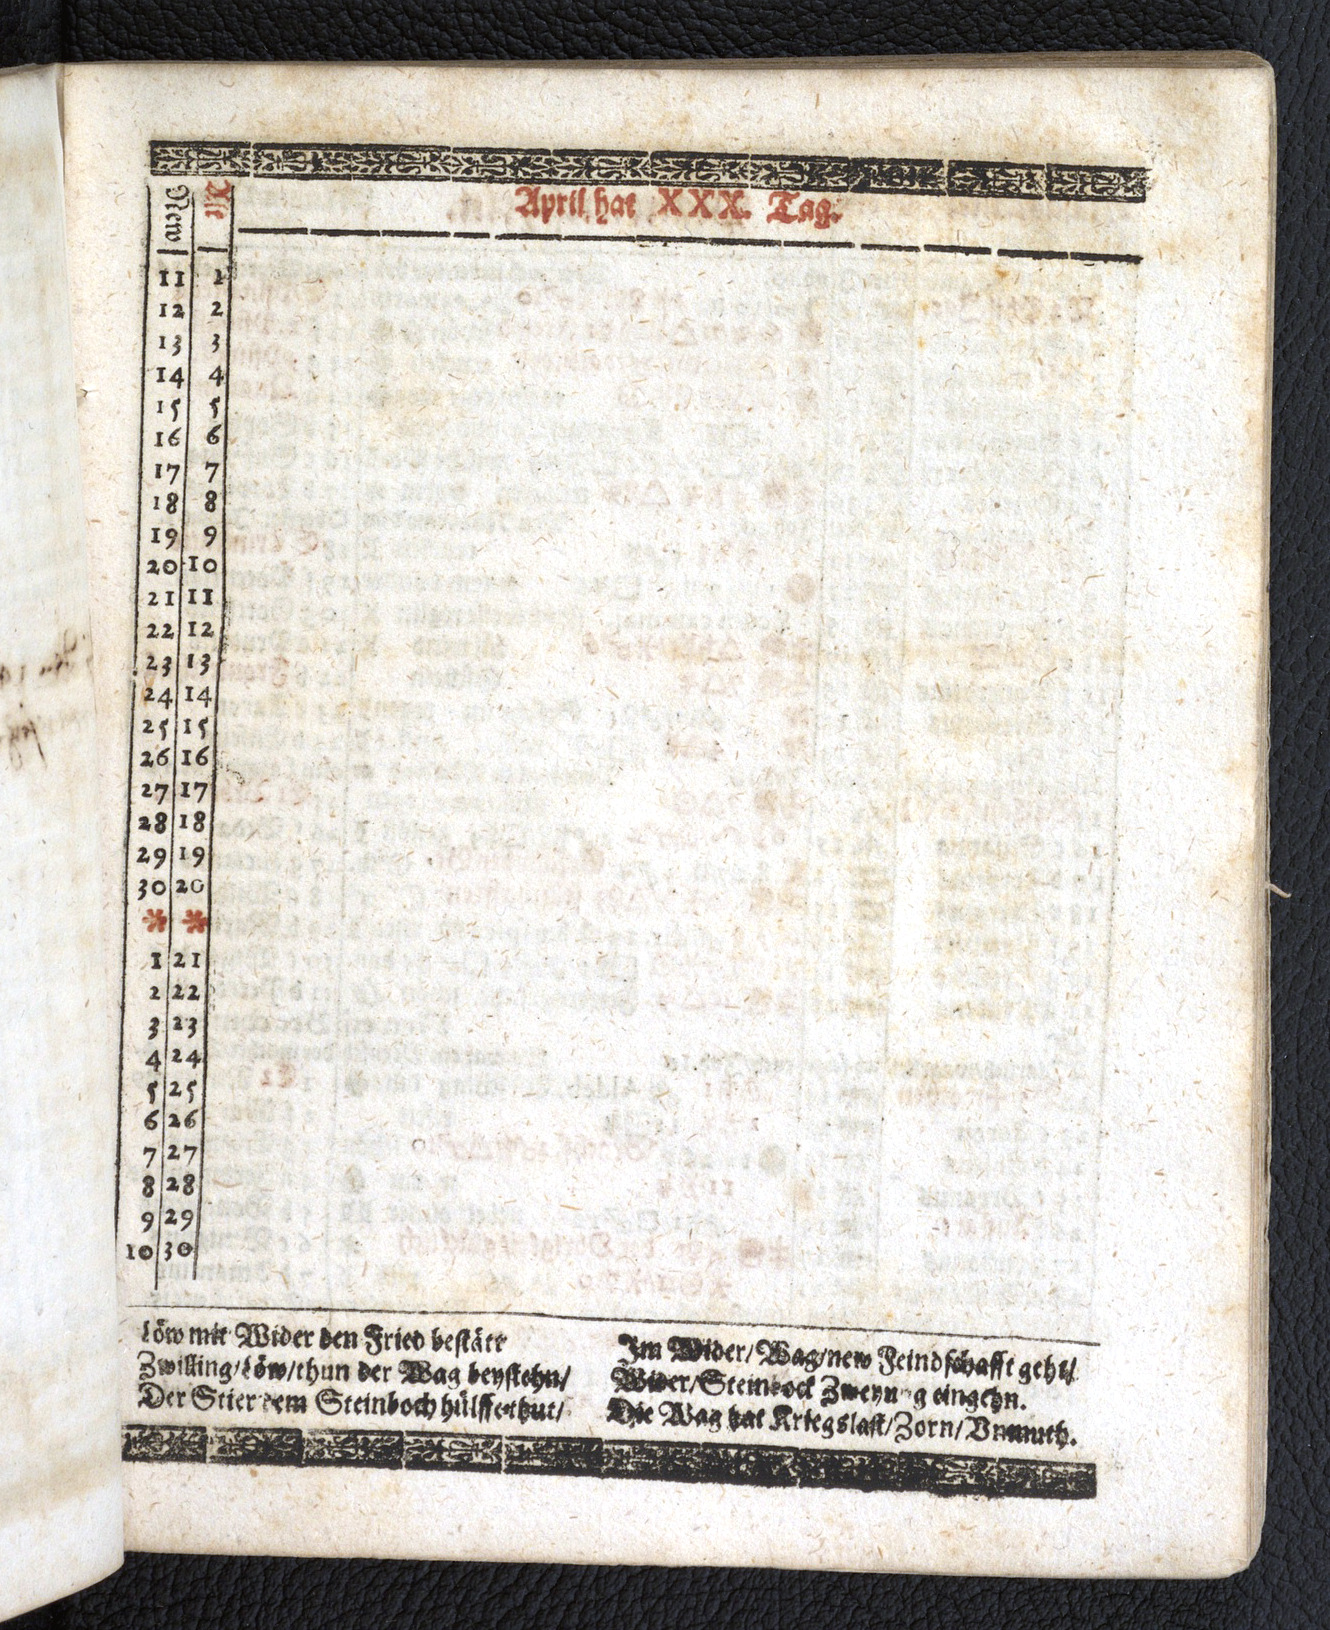 April hat XXX. Tag.
New Alt
11 1
12 2
13 3
14 4
15 5
16 6
17 7
18 8
19 9
20 10
21 11
22 12
23 13
24 14
25 15
26 16
27 17
28 18
29 19
30 20
* *
1 21
2 22
3 23
4 24
5 25
6 26
7 27
8 28
9 29
10 30
Löw mit Wider den Fried bestätt
Zwilling/Löw/thun der Wag beystehn/
Der Stier dem Steinboch hülffe thut/
Im Wider/Wag/new Feindschafft geht/
Wider/Steinbock Zweyung eingehn.
Die Wag hat Kriegslast/Zorn/Vnmuth.